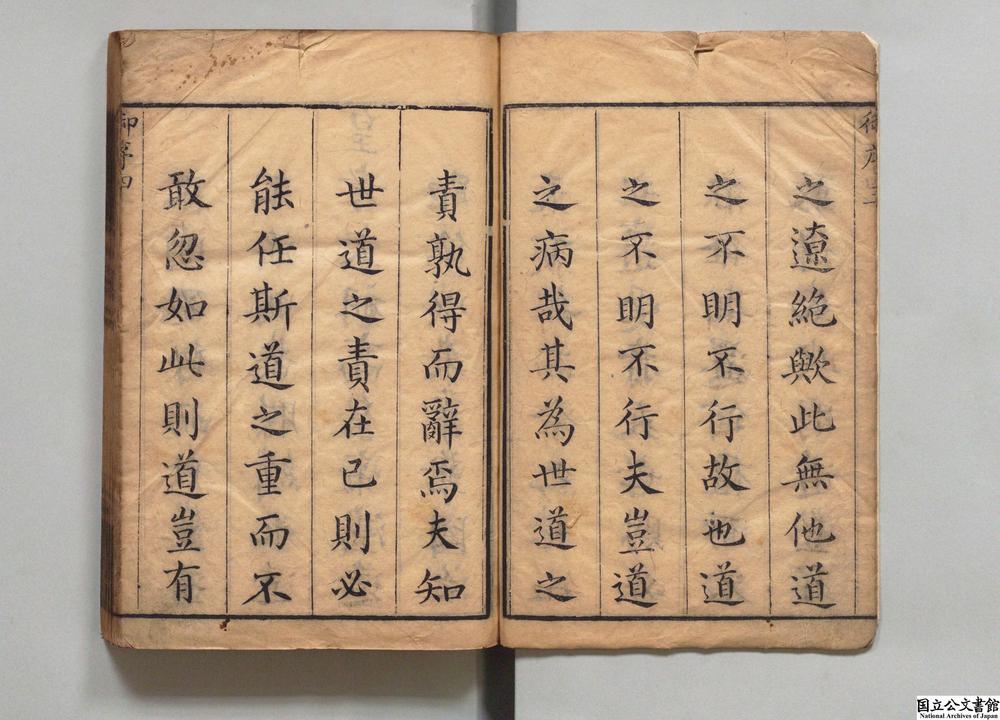 之遼絶歟此無他道
之不明不行故也道
之不明不行夫豈道
之病哉其為世道之
責孰得而辭焉夫知
世道之責在己則必
能任斯道之重而不
敢忽如此則道豈有
御序四
国立公文書館
National Archives of Japan